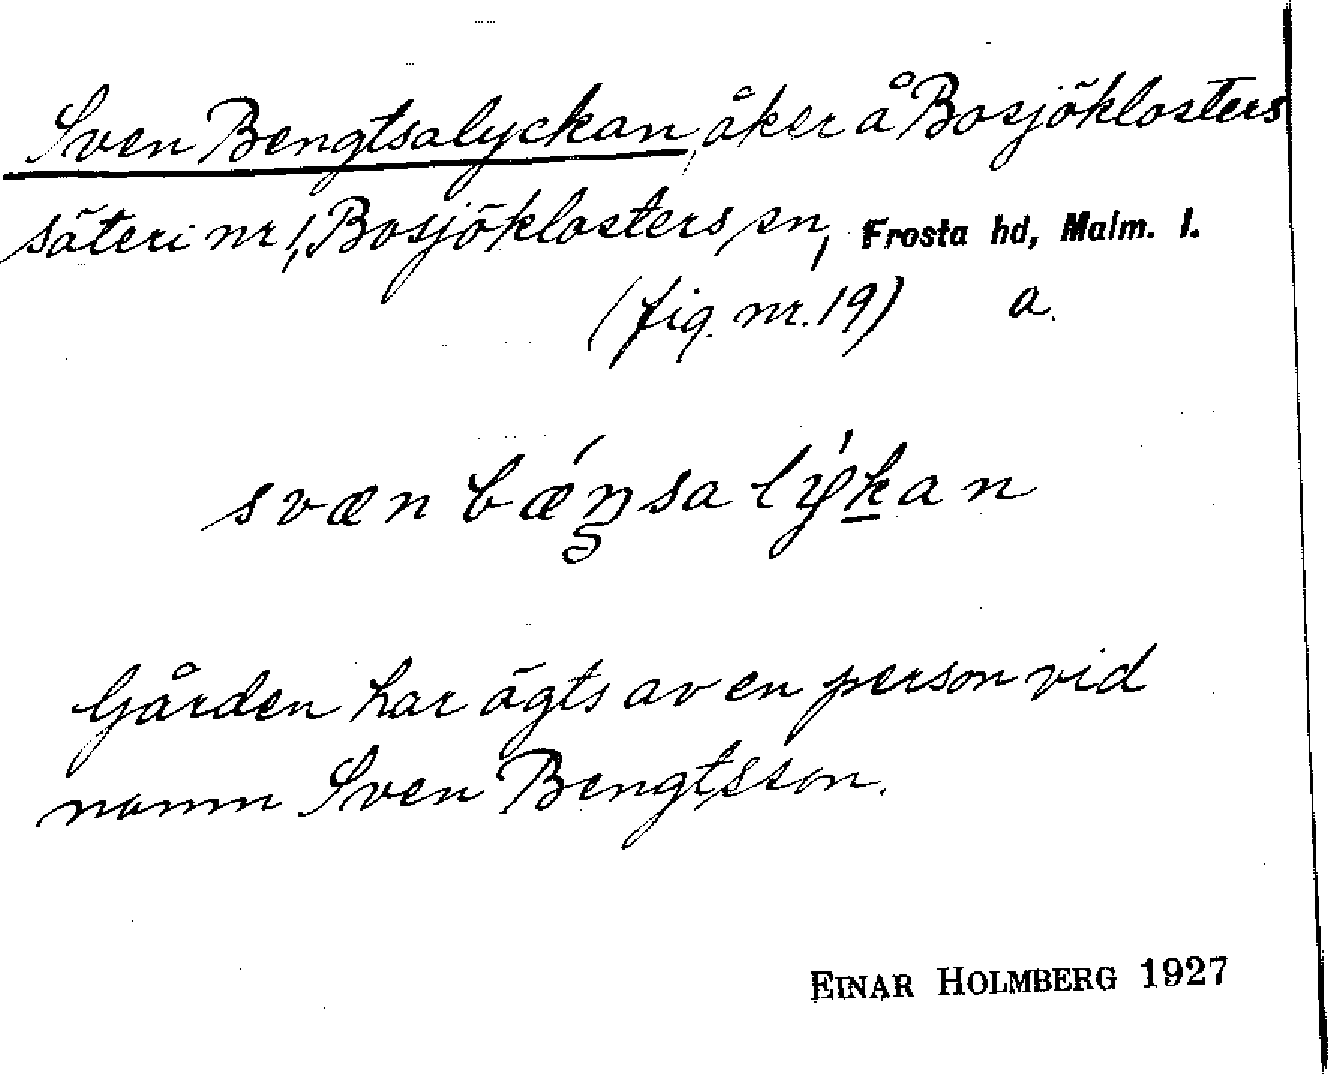 Sven Bengtsalyckan, åker å Bosjöklosters
säteri nr 1, Bosjöklosters sn, Frosta hd, Malm. l.
(fig. nr. 19) a.
svæn bǽn̡sa lýkan
Gården har ägts av en person vid
namn Sven Bengtsson.
EINAR HOLMBERG 1927